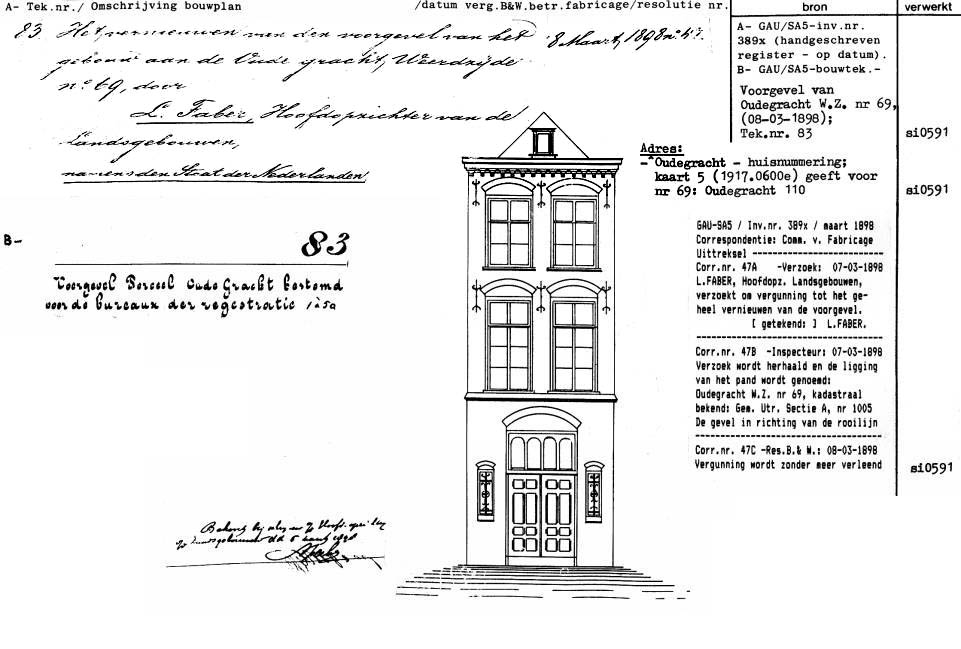 A- Tek.nr./ Omschrijving bouwplan /datum verg.B&W.betr.fabricage/resolutie nr. bron verwerkt
83 Het vernieuwen van den voorgevel van het 8 Maart, 1898 no 47.
gebouw aan de Oude gracht, Weerdzijde
no. 69, door
L. Faber, Hoofdopzichter van de
Landsgebouwen,
namens den Staat der Nederlanden
A- GAU/SA5-inv.nr.
389x (handgeschreven
register - op datum).
B- GAU/SA5-bouwtek.-
Voorgevel van
Oudegracht W.Z. nr 69,
(08-03-1898);
Tek.nr. 83 si0591
Adres:
Oudegracht - huisnummering;
kaart 5 (1917.0600e) geeft voor
nr 69: Oudegracht 110 si0591
B- 83
Voorgevel Perceel Oude Gracht bestemd
voor de bureaux der registratie 1 à 50
GAU-SA5 / Inv.nr. 389x / maart 1898
Correspondentie: Comm. v. Fabricage
Uittreksel -----------------------
Corr.nr. 47A -Verzoek: 07-03-1898
L.FABER, Hoofdopz. Landsgebouwen,
verzoekt om vergunning tot het ge-
heel vernieuwen van de voorgevel.
[ getekend: ] L.FABER.
Corr.nr. 47B -Inspecteur: 07-03-1898
Verzoek wordt herhaald en de ligging
van het pand wordt genoemd:
Oudegracht W.Z. nr 69, kadastraal
bekend: Gem. Utr. Sectie A, nr 1005
De gevel in richting van de rooilijn
Corr.nr. 47C -Res.B.& W.: 08-03-1898
Vergunning wordt zonder meer verleend si0591